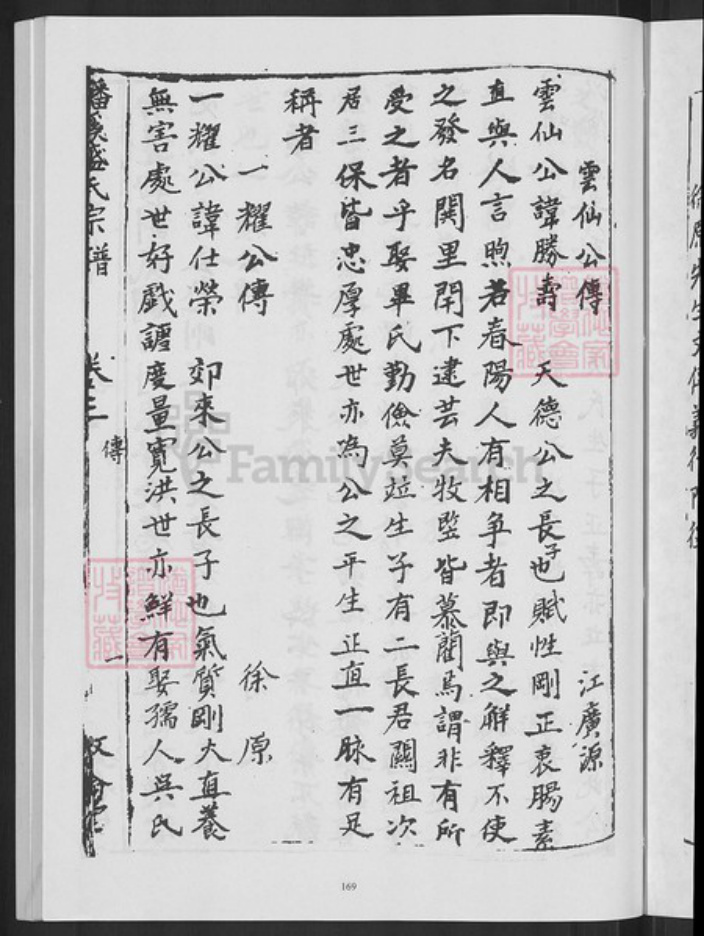 雲仙公傳 江廣源
雲仙公諱勝壽 天德公之長子也賦性剛正衷腸素
直與人言煦若春陽人有相爭者即與之解釋不使
之發名関里閈下逮芸夫牧竪皆慕藺焉謂非有所
受之者乎娶畢氏勤儉莫竝生子有二長君關祖次
居三保皆忠厚處世亦為公之平生正直一脉有足
稱者
一耀公傳 徐原
一耀公諱仕榮 郊來公之長子也氣質剛大直養
無害處世好戯謔度量寬洪世亦鮮有娶孺人吳氏
氏宗譜 卷三 傳 一
FamilySearch
169